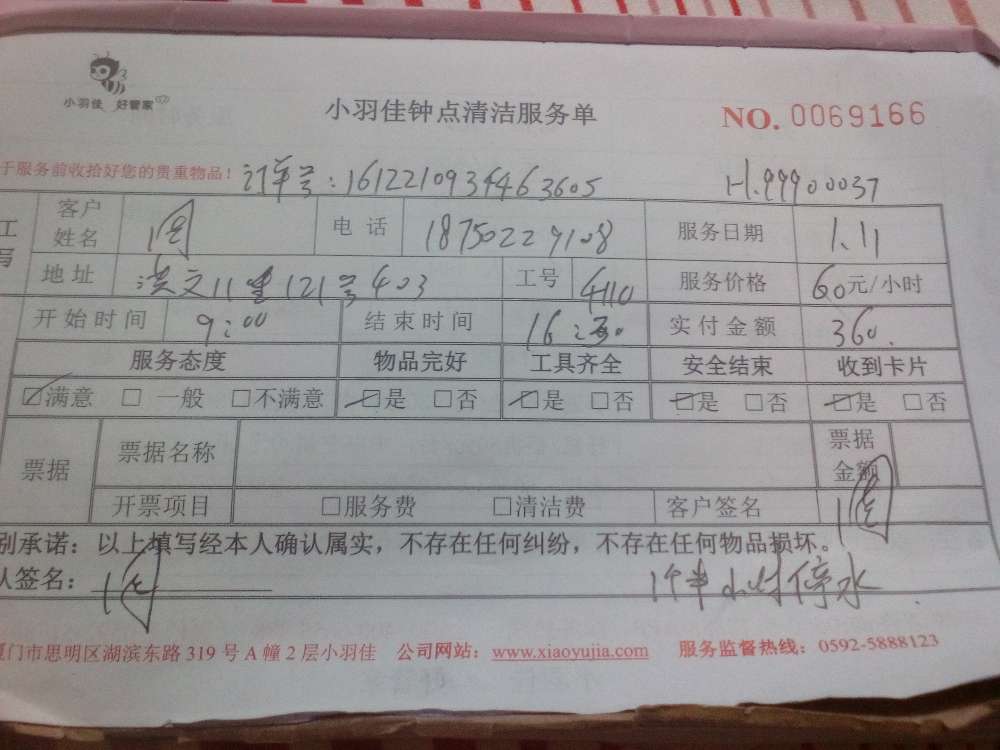 小羽佳 好管家
小羽佳钟点清洁服务单
NO. 0069166
于服务前收拾好您的贵重物品！ 订单号：1612210934463605 H.99900037
工 客户姓名 周 电话 18750229108 服务日期 1.11
写 地址 洪文11里121号403 工号 4110 服务价格 60元/小时
开始时间 9:00 结束时间 16:30 实付金额 360.
服务态度 物品完好 工具齐全 安全结束 收到卡片
☑满意 □ 一般 □不满意 ☑是 □否 ☑是 □否 ☑是 □否 ☑是 □否
票据 票据名称 票据金额
开票项目 □服务费 □清洁费 客户签名 周
别承诺：以上填写经本人确认属实，不存在任何纠纷，不存在任何物品损坏。
人签名： 周 1个半小时停水
厦门市思明区湖滨东路 319 号 A 幢 2 层小羽佳 公司网站：www.xiaoyujia.com 服务监督热线：0592-5888123